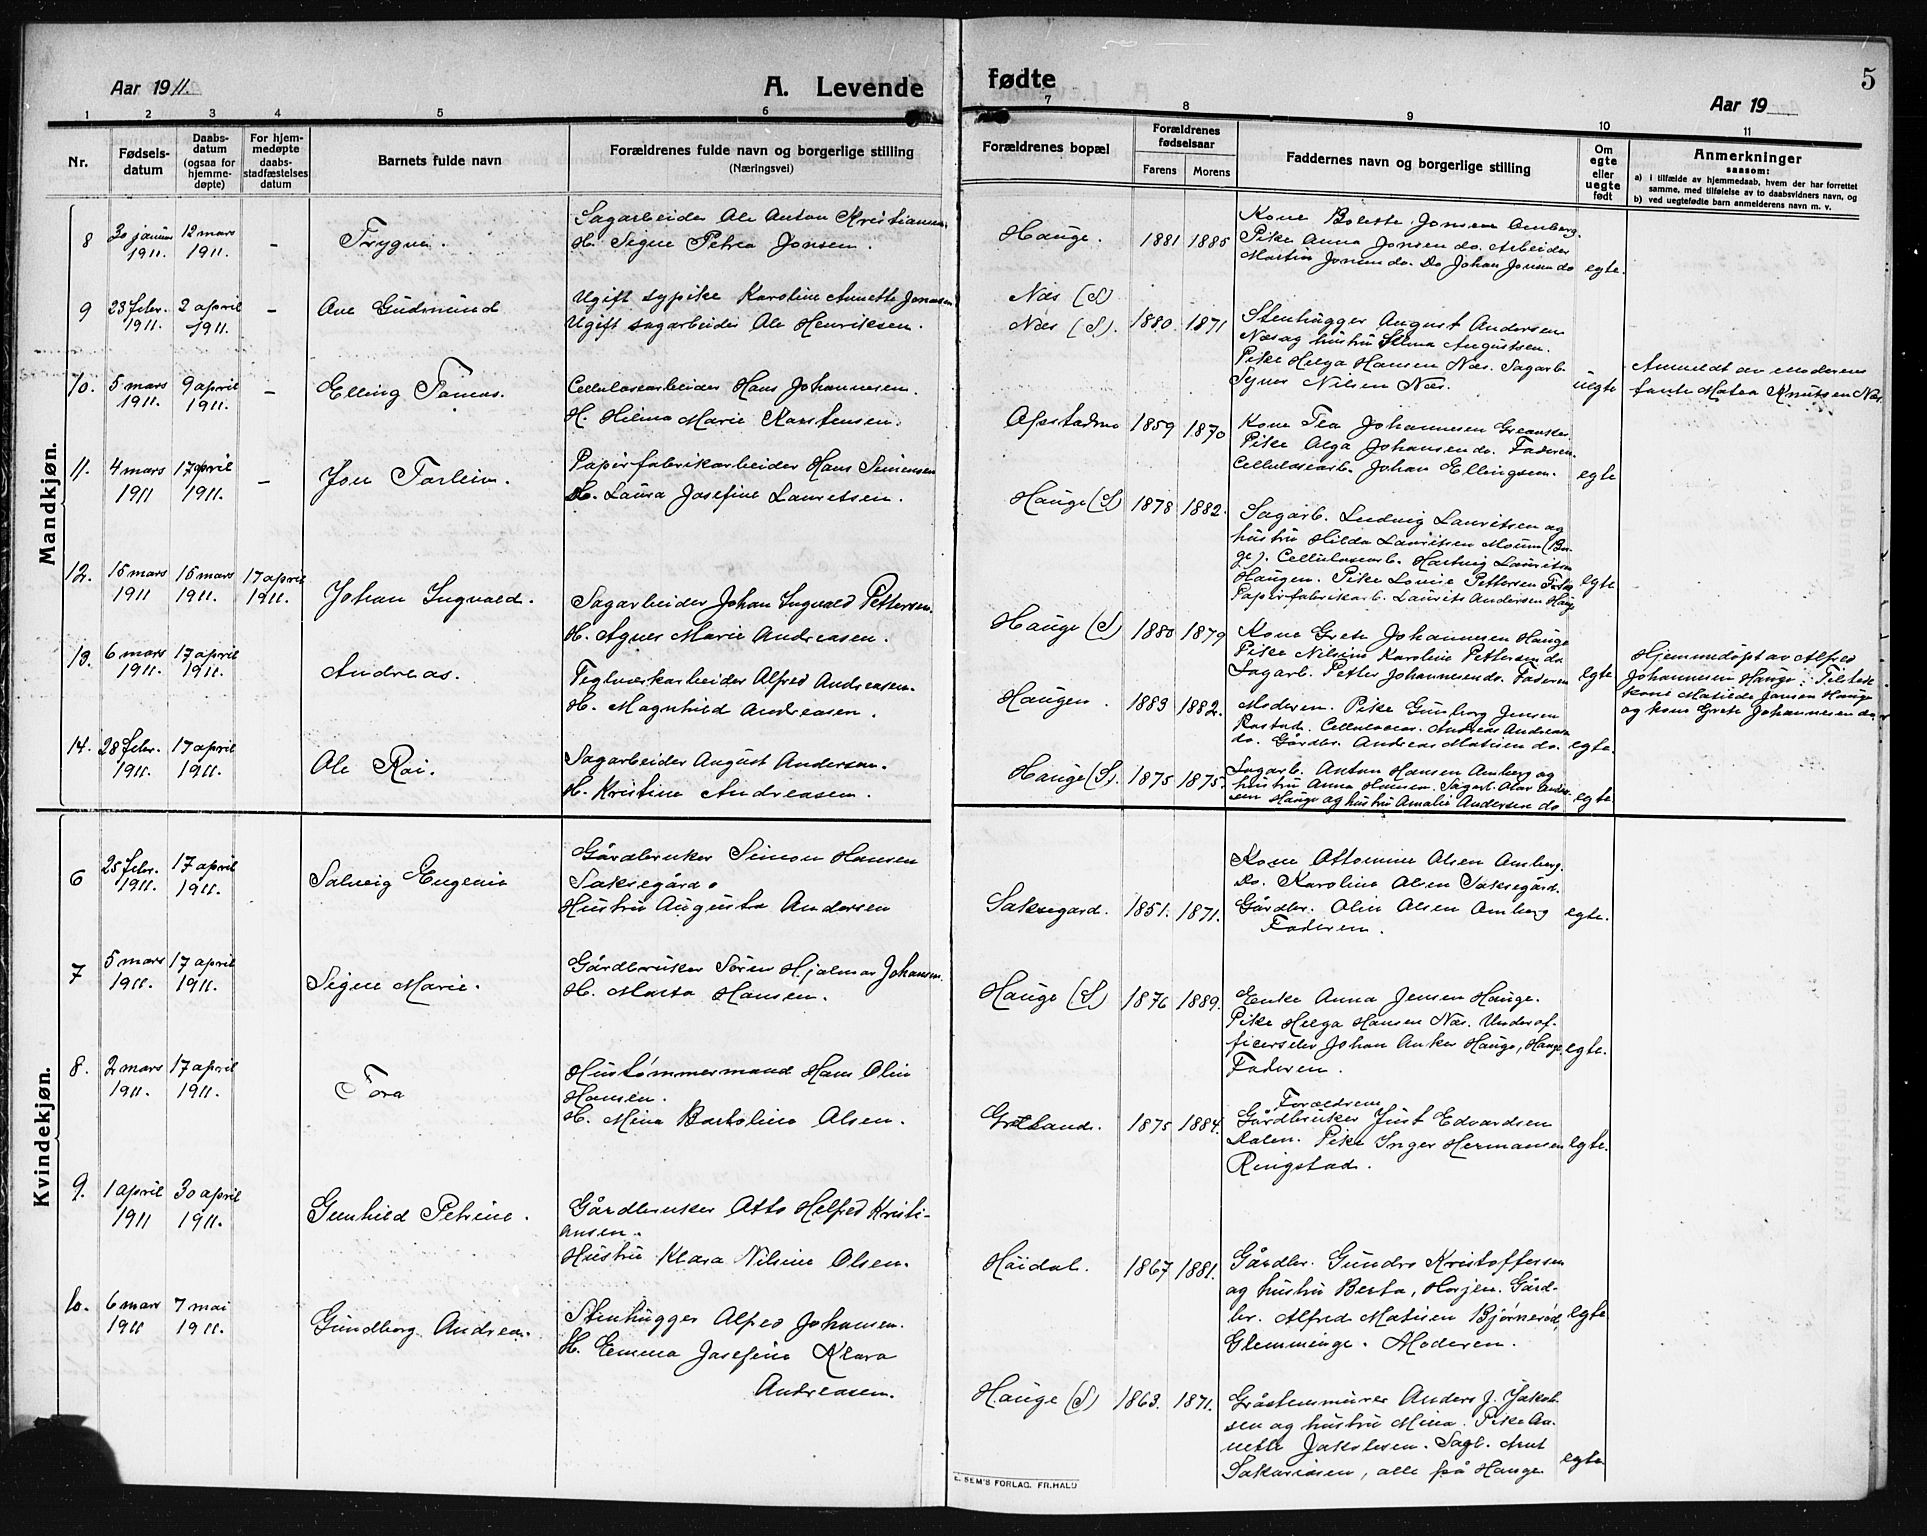 Aar 1911.
A. Levende fødte
Aar 19
5
1 2 3 4 5 6 7 8 9 10 11
Nr.
Fødsels-
datum
Daabs-
datum
(ogsaa for
hjemme-
døpte)
For hjem-
medøpte
daabs-
stadfæstelses
datum
Barnets fulde navn
Forældrenes fulde navn og borgerlige stilling
(Næringsvei)
Forældrenes bopæl
Forældrenes
fødselsaar
Farens Morens
Faddernes navn og borgerlige stilling
Om
egte
eller
uegte
født
Anmerkninger
saasom:
a) i tilfælde av hjemmedaab, hvem der har forrettet
samme, med tilføielse av to daabsvidners navn, og
b) ved uegtefødte barn anmelderens navn m. v.
Mandkjøn.
8 30 januar 1911. 12 mars 1911. - Trygve.
Sagarbeider Ole Anton Kristiansen
H. Signe Petrea Jonsen.
Hauge. 1881 1885
Kone Boleste Jonsen Omberg.
Pike Anna Jonsen do. Arbeider
Martin Jonsen do. Do Johan Jonsen do
egte.
9 23 febr. 1911. 2 april 1911. - Ove Gudmund
Ugift sypike Karoline Annette Jonassen
Ugift sagarbeider Ole Henriksen.
Næs (S)
Næs (S). 1880. 1871
Stenhugger August Andersen
Næs og hustru Elina Augustsen.
Pike Helga Hansen Næs. Sagarb.
Syver Nilsen Næs.
uegte
Anmeldt av moderens
tante Matea Knutsen Næs.
10. 5 mars 1911. 9 april 1911. - Elling Tomas.
Cellulosearbeider Hans Johannesen.
H. Helma Marie Karstensen.
Opstadmo 1859 1870
Kone Tea Johannesen Greaaker.
Pike Olga Johansen do. Faderen.
Cellulosearb. Johan Ellingsen.
egte
11. 4 mars 1911 17 april 1911. - Jon Torleiv.
Papirfabrikarbeider Hans Simensen
H. Laura Josefine Lauritsen.
Hauge (S) 1878 1882.
Sagarb. Ludvig Lauritsen og
hustru Hilda Lauritsen Moum (Bor-
ge). Cellulosearb. Hartvig Lauritsen
Haugen. Pike Lovise Pettersen
Papirfabrikarb. Laurits Andersen Haug
egte
12. 15 mars 1911 15 mars 1911. 17 april 1911. Johan Ingvald.
Sagarbeider Johan Ingvald Pettersen.
H. Agnes Marie Andreasen.
Hauge (S) 1880 1879
Kone Grete Johannesen Hauge
Pike Nilsine Karoline Pettersen do
Sagarb. Petter Johannesen do. Faderen
egte
Hjemmedøpt av Alfred
Johannesen Hauge. Tilstede
kone Matilde Jansen Hauge
og kone Grete Johannesen do
13. 6 mars 1911. 17 april 1911. Andreas.
Teglverkarbeider Alfred Andreasen.
H. Magnhild Andreasen.
Haugen. 1883 1882.
Moderen. Pike Gunborg Jensen
Rostad. Cellulosear. Andreas Andreasen
do. Gårdbr. Andreas Matisen do.
egte.
14. 28 febr. 1911. 17 april 1911. Ole Roi.
Sagarbeider August Andersen.
H. Kristine Andreasen.
Hauge (S). 1875 1875.
Sagarb. Anton Hansen Omberg og
hustru Anna Hansen. Sagarb. Olav Ander-
sen Hauge og hustru Amalie Andersen do
egte
Kvindekjøn.
6 25 febr. 1911. 17 april 1911. Solveig Eugenie
Gårdbruker Simon Hansen
Saksegård.
Hustru Augusta Andersen
Saksegard. 1851. 1871.
Kone Ottomine Olsen Omberg.
Do. Karoline Olsen Saksegård.
Gårdbr. Olin Olsen Omberg
Faderen.
egte.
7 5 mars 1911. 17 april 1911. Signe Marie.
Gårdbruker Søren Hjalmar Johansen.
H. Marta Hansen.
Hauge (S) 1876 1889.
Enke Anna Jensen Hauge.
Pike Helga Hansen Næs. Underof-
ficerselev Johan Anker Hauge, Hauge
Faderen.
egte.
8. 2 mars 1911. 17 april 1911. Tora
Hustømmermand Hans Olin
Hansen.
H. Mina Bartoline Olsen.
Grøtland. 1875 1884.
Foreldrene
Gårdbruker Just Edvardsen
Dalen. Pike Inger Hermansen
Ringstad.
egte.
9. 1 april 1911 30 april 1911. Gunhild Petrine.
Gårdbruker Otto Helfred Kristi-
ansen.
Hustru Klara Nilsine Olsen.
Höidal. 1867 1881.
Gårdbr. Gundro Kristoffersen
og hustru Berta, Horjen. Gård-
br. Alfred Matisen Bjørnerød,
Glemminge. Moderen.
egte
10. 6 mars 1911 7 mai 1911. Gundborg Andrea.
Stenhugger Alfred Johansen.
H. Emma Josefine Klara
Andreasen.
Hauge (S) 1863. 1871.
Gråstenmurer Anders J. Jakob-
sen og hustru Mina. Pike An-
nette Jakobsen. Sagb. Arnt
Sakariasen, alle på Hauge
egte
E. SEM'S FORLAG, FR.HALD